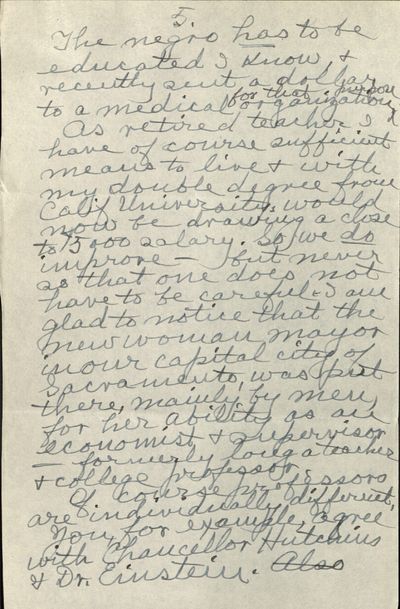 5.
The negro has to be
educated I know, &
recently sent a dollar
for that purpose
to a medical organization,
As retired teacher I
have of course sufficient
means to live & with
my double degree from
Calif University, would
now be drawing a close
to $5000 salary. So we do
improve — but never
so that one does not
have to be careful. I am
glad to notice that the
new woman mayor
in our capital city of
Sacramento, was put
there, mainly by men,
for her ability as an
economist & supervisor
— formerly long a teacher
& college professor.
Of course professors
are individually different,
You, for example, agree
with Chancellor Hutchins
& Dr. Einstein. Also